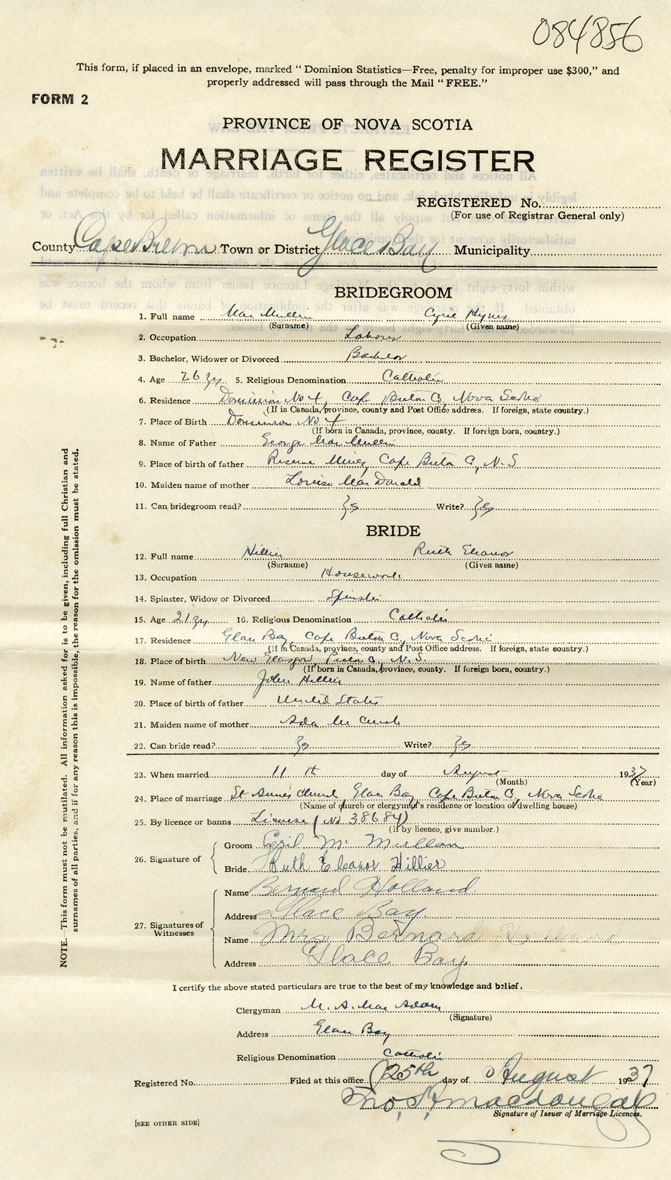 084856
This form, if placed in an envelope, marked "Dominion Statistics—Free, penalty for improper use $300," and
properly addressed will pass through the Mail "FREE."
FORM 2
PROVINCE OF NOVA SCOTIA
MARRIAGE REGISTER
REGISTERED No.
(For use of Registrar General only)
County Cape Breton Town or District Glace Bay Municipality
BRIDEGROOM
1. Full name Mac Mullin Cyril Hynes
(Surname) (Given name)
2. Occupation Labour
3. Bachelor, Widower or Divorced Bachelor
4. Age 26 yr 5. Religious Denomination Catholic
6. Residence Dominion No 4, Cape Breton C, Nova Scotia
(If in Canada, province, county and Post Office address. If foreign, state country.)
7. Place of Birth Dominion No 4
(If born in Canada, province, county. If foreign born, country.)
8. Name of Father George Mac Mullin
9. Place of birth of father Reserve Mines, Cape Breton C, N.S
10. Maiden name of mother Louise Mac Donald
11. Can bridegroom read? Yes Write? Yes
BRIDE
12. Full name Hillier Ruth Eleanor
(Surname) (Given name)
13. Occupation Housework
14. Spinster, Widow or Divorced Spinster
15. Age 21 yr 16. Religious Denomination Catholic
17. Residence Glace Bay, Cape Breton C, Nova Scotia
(If in Canada, province, county and Post Office address. If foreign, state country.)
18. Place of birth New Glasgow, Pictou C, N.S.
(If born in Canada, province, county. If foreign born, country.)
19. Name of father John Hillier
20. Place of birth of father United States
21. Maiden name of mother Ada
22. Can bride read? Yes Write? Yes
23. When married 11 th day of August 1937
(Month) (Year)
24. Place of marriage St Anne's Church, Glace Bay, Cape Breton C, Nova Scotia
(Name of church or clergyman's residence or location of dwelling house)
25. By licence or banns License (No 38684)
(if by licence, give number.)
26. Signature of
Groom Cyril Mc Mullan
Bride Ruth Eleanor Hillier
27. Signatures of Witnesses
Name Bernard Holland
Address Glace Bay
Name Mrs Bernard Holland
Address Glace Bay
I certify the above stated particulars are true to the best of my knowledge and belief.
Clergyman M. A. Mac Adam
(Signature)
Address Glace Bay
Religious Denomination Catholic
Registered No. Filed at this office 25th day of August 1937
Macdougall
Signature of Issuer of Marriage Licences.
[SEE OTHER SIDE]
NOTE. This form must not be mutilated. All information asked for is to be given, including full Christian and
surnames of all parties, and if for any reason this is impossible, the reason for the omission must be stated.